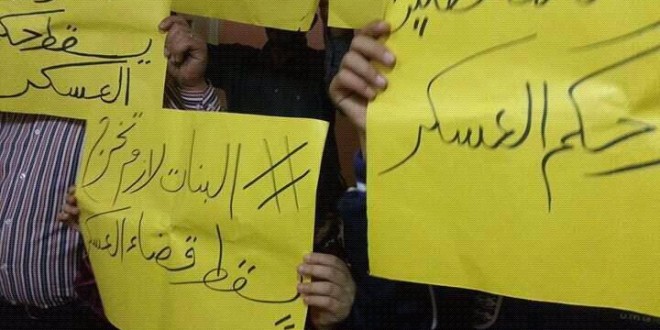 يسقط حكم
العسكر
#البنات لازم تخرج
يسقط قضاء العسكر
حكم العسكر